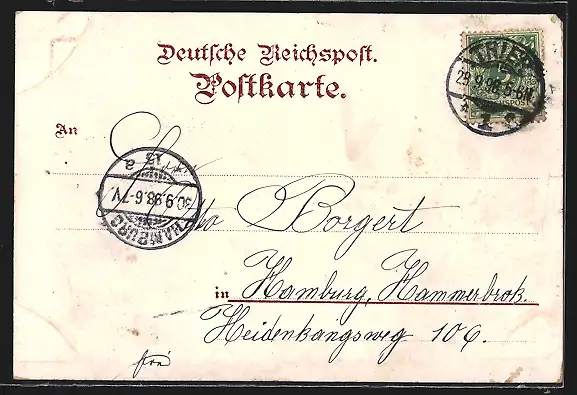 Deutsche Reichspost.
Postkarte.
TRIER
29.9.98.6-
1
REICHSPOST
An Herrn
HAMBURG
30.9.98.6-7V.
* 13 a
Otto Borgert
in Hamburg, Hammerbrok.
Heidenkangsweg 106.